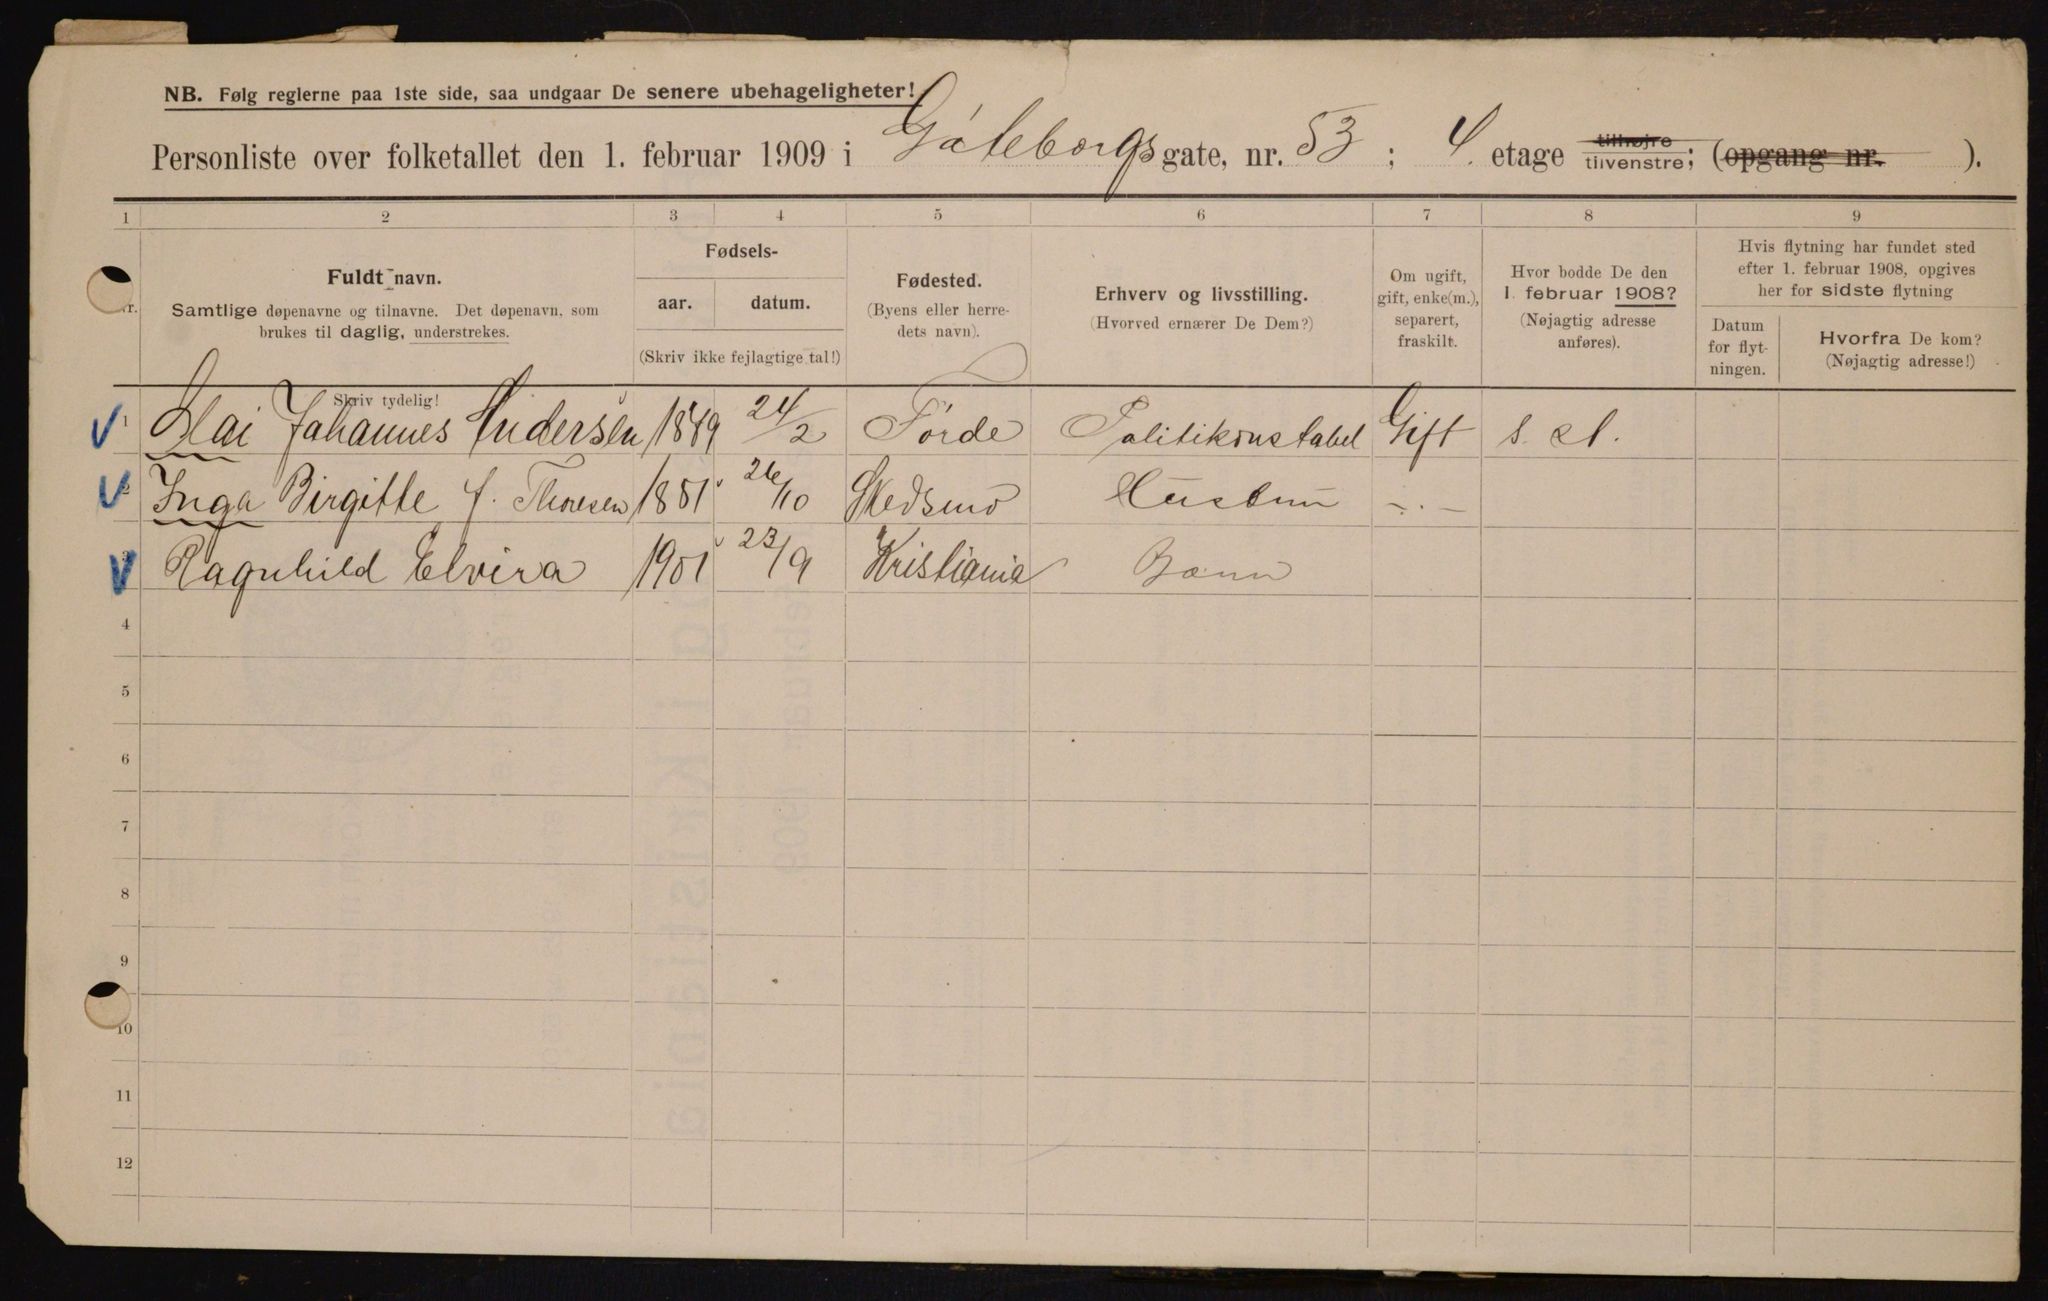 NB. Følg reglerne paa 1ste side, saa undgaar De senere ubehageligheter!
Personliste over folketallet den 1. februar 1909 i Göteborgs gate, nr. 53 ; 4. etage tilhøjre tilvenstre; (opgang nr. ).
1 2 3 4 5 6 7 8 9
Fuldt navn.
Samtlige døpenavne og tilnavne. Det døpenavn, som
brukes til daglig, understrekes.
Fødsels-
aar. datum.
(Skriv ikke fejlagtige tal!)
Fødested.
(Byens eller herre-
dets navn).
Erhverv og livsstilling.
(Hvorved ernærer De Dem?)
Om ugift,
gift, enke(m.),
separert,
fraskilt.
Hvor bodde De den
1. februar 1908?
(Nøjagtig adresse
anføres).
Hvis flytning har fundet sted
efter 1. februar 1908, opgives
her for sidste flytning
Datum
for flyt-
ningen.
Hvorfra De kom?
(Nøjagtig adresse!)
Skriv tydelig!
1 Johannes Andersen 24/2 Førde Politikonstabel Gift s. st.
2 Inga Birgitte f. Thoresen 1881 26/10 Skedsmo Hustru -.-
3 Ragnhild Elvira 1901 23/9 Kristiania Barn
4
5
6
7
8
9
10
11
12